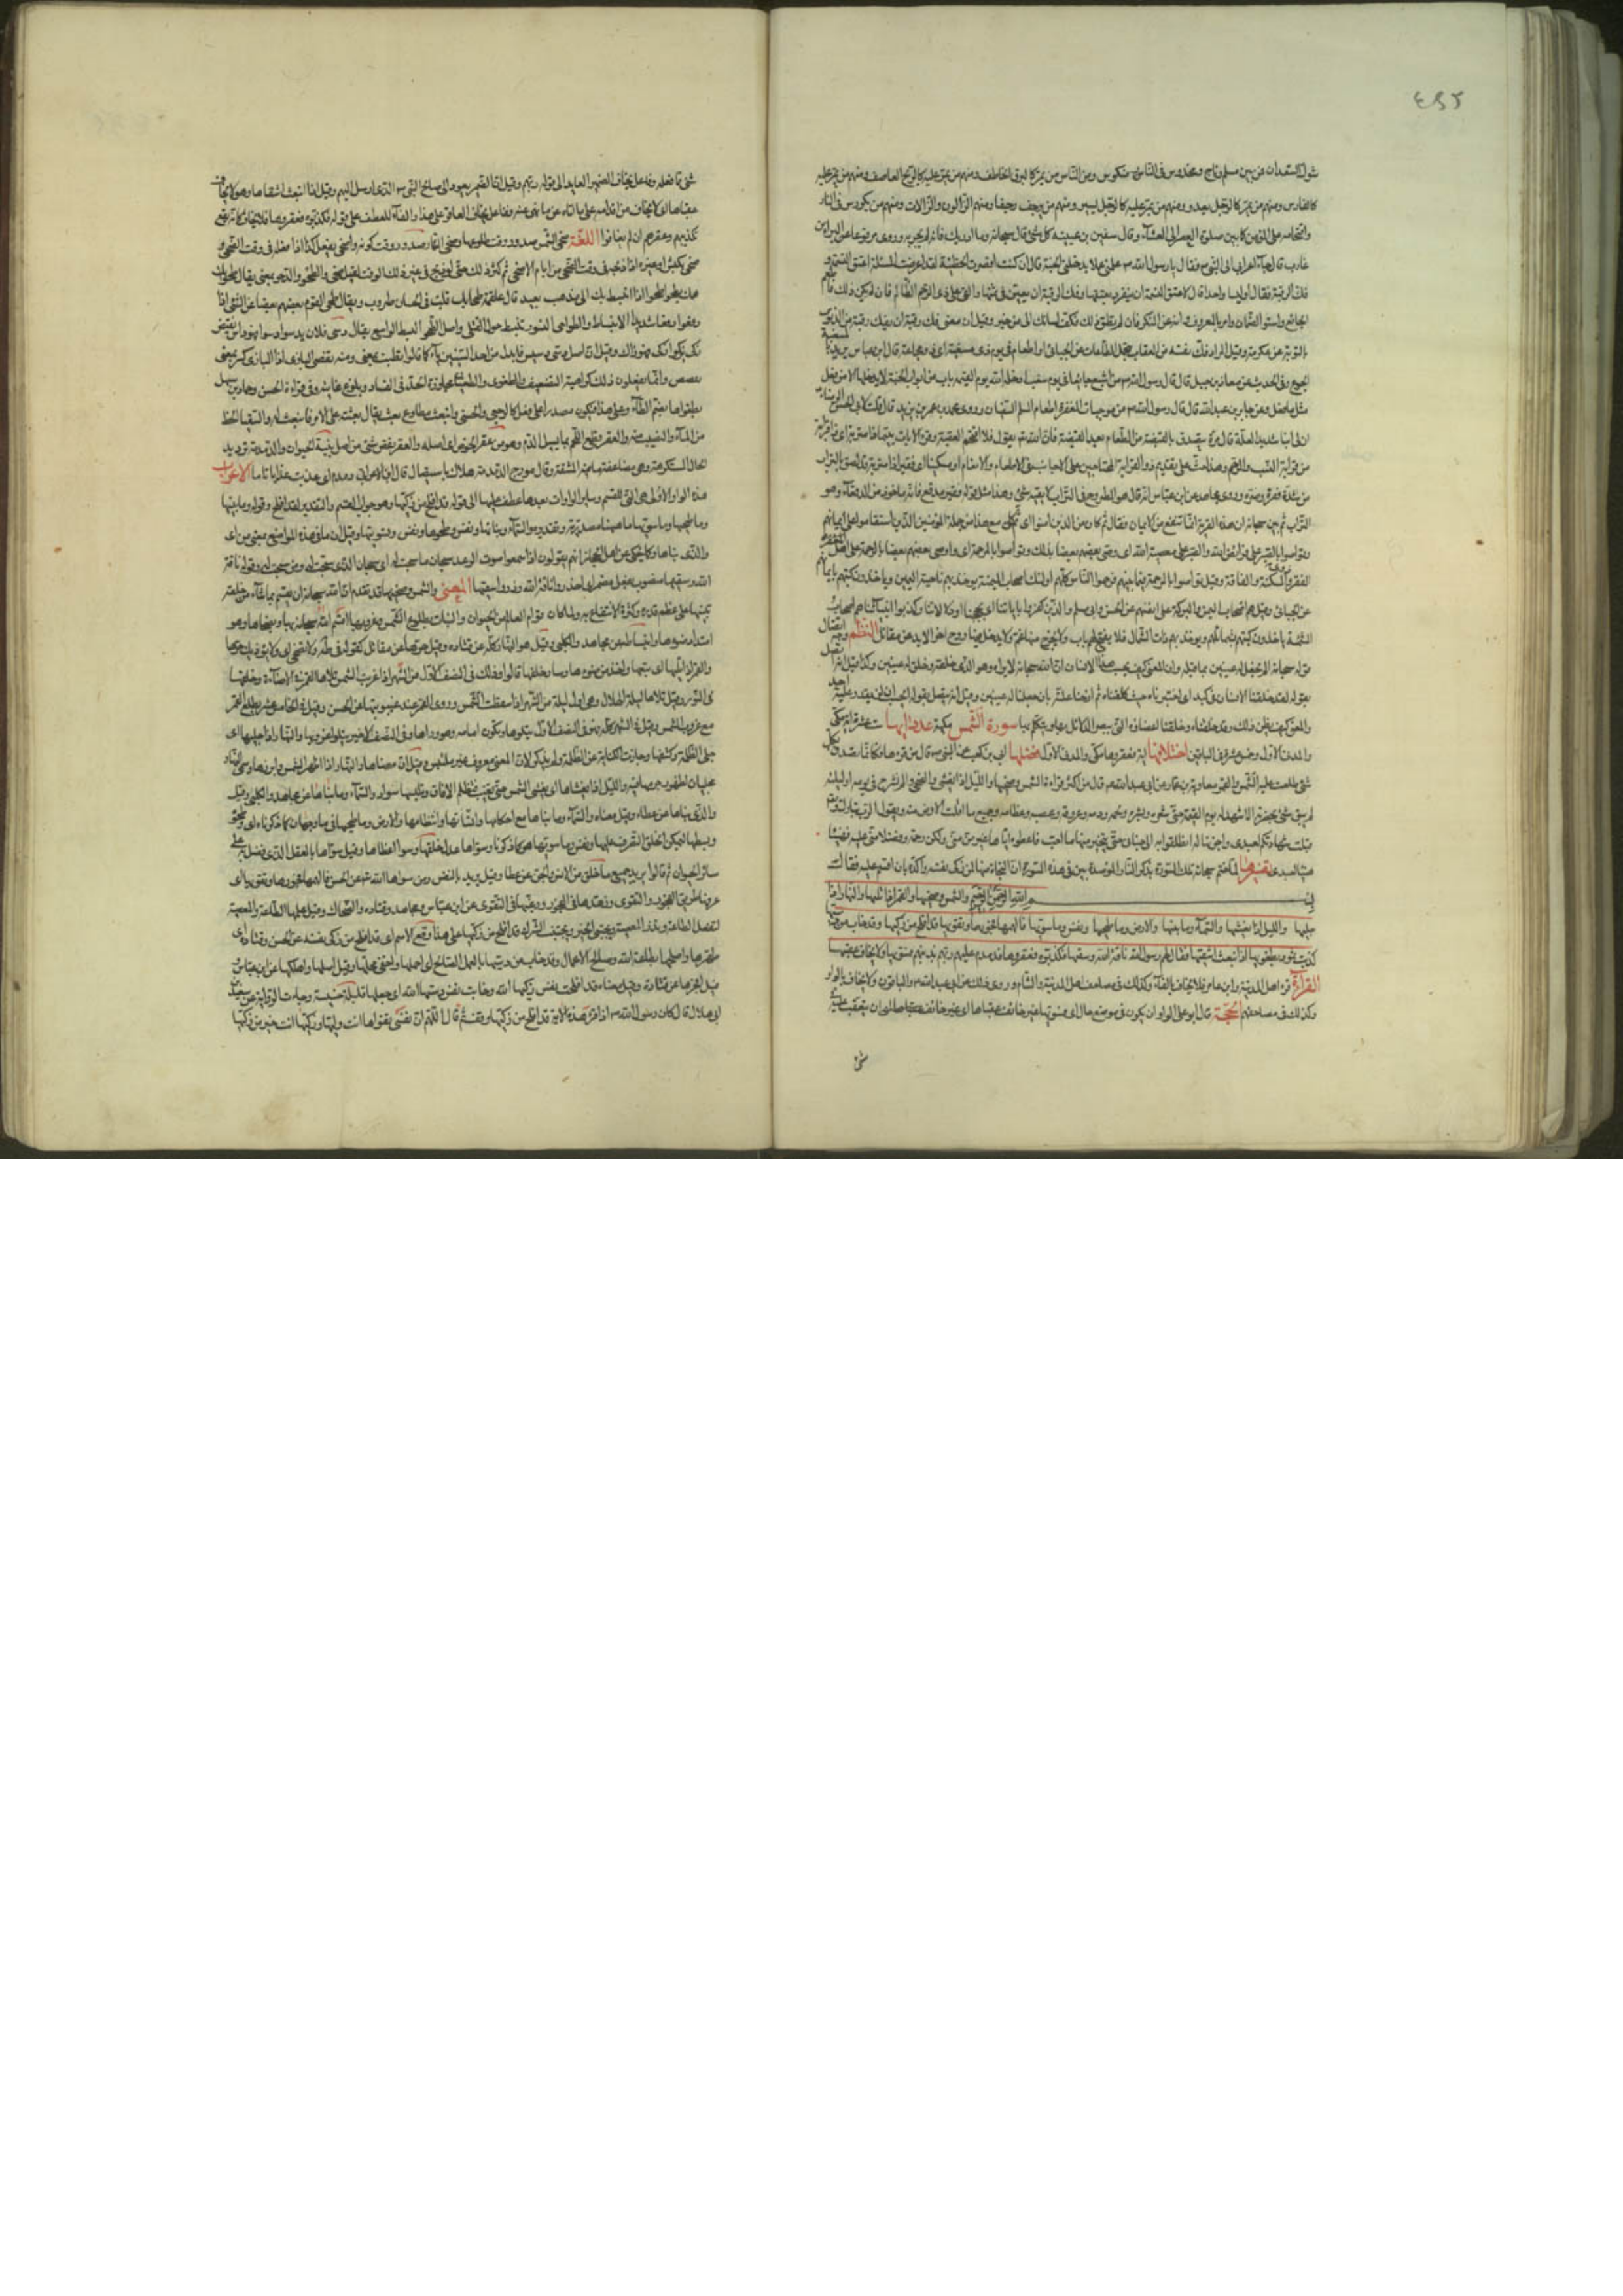 شوك السعدان فمن بين مسلم وناج ومخدوس في النار منكوس ومن الناس من يمر كالبرق الخاطف ومنهم من يمر عليه كالريح العاصف ومنهم من يمر عليه
كالفارس ومنهم من يمر كالرجل يعدو ومنهم من يمر عليه كالرجل يسير ومنهم من يزحف زحفا ومنهم الزالون والزالات ومنهم من يكردس في النار
واقتحامه على المؤمن كما بين صلوة العصر الى العشاء وقال سفين بن عيينة كل شئ قال سبحانه وما ادريك فانه اخبره به وروى مرفوعا عن البراء بن
عازب قال جاء اعرابى الى النبى فقال يا رسول الله علمنى عملا يدخلنى الجنة قال ان كنت اقصرت الخطبة لقد اعرضت المسئلة اعتق النسمة و
فك الرقبة فقال اوليسا واحدا قال لا عتق النسمة ان ينفرد بعتقها وفك الرقبة ان يعين فى ثمنها والفئ على ذى الرحم الظالم فان لم يكن ذلك فاطعم
الجائع واسق الظمآن وامر بالمعروف وانه عن المنكر فان لم تطق ذلك فكف لسانك الا من خير وقيل ان معنى فك رقبة ان يفك رقبة من الذنوب
بالتوبة عن عكرمة وقيل اراد فك نفسه من العقاب بتحمل الطاعات عن الجبائى او اطعام فى يوم ذى مسغبة اى ذى مجاعة قال ابن عباس يريد
الجوع وفى الحديث عن معاذ بن جبل قال قال رسول الله من اشبع جائعا فى يوم سغب ادخله الله يوم القيمة من باب من ابواب الجنة لا يدخلها الا من فعل
مثل ما فعل وعن جابر بن عبدالله قال قال رسول الله من موجبات المغفرة اطعام المسلم السغبان وروى محمد بن عمر بن يزيد قال قلت لابى الحسن الرضا
ان لى ابنا شديد العلة قال مره يتصدق بالقبضة من الطعام بعد القبضة فان الله تعالى يقول فلا اقتحم العقبة وقرء الايات يتيما ذا مقربة اى ذا قرابة
من قرابة النسب والرحم وهذا حث على تقديم ذوى القرابة المحتاجين على الاجانب فى الاطعام والانعام او مسكينا اى فقيرا ذا متربة قد لصق بالتراب
من شدة فقره وضره وروى مجاهد عن ابن عباس انه قال هو المطروح فى التراب لا يقيه شئ وهذا مثل قولهم فقير مدقع فانه ماخوذ من الدقعاء وهو
التراب ثم بين سبحانه ان هذه القربة انما تنفع مع الايمان فقال ثم كان من الذين امنوا اى ثم كان مع هذا من جملة المؤمنين الذين استقاموا على ايمانهم
وتواصوا بالصبر على فرائض الله والصبر عن معصية الله اى وصى بعضهم بعضا بذلك وتواصوا بالمرحمة اى واوصى بعضهم بعضا بالمرحمة على اهل
الفقر والمسكنة والفاقة وقيل تواصوا بالمرحمة فيما بينهم فرحموا الناس كلهم اولئك اصحاب الميمنة يوخذ بهم ناحية اليمين وياخذون كتبهم بايمانهم
عن الجبائى وقيل هم اصحاب اليمن والبركة على انفسهم عن الحسن وابى مسلم والذين كفروا باياتنا اى بحججنا ودلالاتنا وكذبوا انبياءنا هم اصحاب
المشئمة ياخذون كتبهم بشمائلهم ويوخذ بهم ذات الشمال فلا يفتح لهم باب ولا يخرج منها غم ولا يدخل فيها روح اخر الابد عن مقاتل النظم وجه اتصال
قوله سبحانه الم نجعل له عينين بما قبله وان المعنى كيف يحسب هذا الانسان ان الله سبحانه لا يراه وهو الذى خلقه وخلق له عينين وكذا قيل انه يتصل
بقوله لقد خلقنا الانسان فى كبد اى اختبرناه حيث كلفناه ثم ازحنا علته بان جعلنا له عينين وقيل انه يتصل بقوله ايحسب ان لن يقدر عليه احد
والمعنى كيف يظن ذلك وقد خلقناه وخلقنا اعضاءه التى يبصر بها الدلائل ويتكلم بها سورة الشمس مكية عدد آيها ست عشرة اية مكى
والمدنى الاول وخمس عشرة فى الباقين اختلافها اية فعقروها مكى والمدنى الاول فضلها ابى بن كعب عن النبى قال من قرءها فكانما تصدق بكل
شئ طلعت عليه الشمس والقمر معاوية بن عمار عن ابى عبدالله قال من اكثر قراءة الشمس وضحيها والليل اذا يغشى والضحى والم نشرح فى يومه او ليلته
لم يبق شئ بحضرته الا شهد له يوم القيمة حتى شعره وبشره ولحمه ودمه وعروقه وعصبه وعظامه وجميع ما اقلت الارض منه ويقول الرب تبارك وتعالى
قبلت شهادتكم لعبدى واجزتها له انطلقوا به الى جنانى حتى يتخير منها حيث ما احب فاعطوه اياها من غير من منى ولكن رحمة وفضلا منى عليه فهنيئا
هنيئا لعبدى تفسيرها لما ختم سبحانه تلك السورة بذكر النار الموصدة بين فى هذه السورة ان النجاة منها لمن زكى نفسه واكده بان اقسم عليه فقال
بسم الله الرحمن الرحيم والشمس وضحيها والقمر اذا تليها والنهار اذا
جليها والليل اذا يغشيها والسماء وما بنيها والارض وما طحيها ونفس وما سويها فالهمها فجورها وتقويها قد افلح من زكيها وقد خاب من دسيها
كذبت ثمود بطغويها اذ انبعث اشقيها فقال لهم رسول الله ناقة الله وسقيها فكذبوه فعقروها فدمدم عليهم ربهم بذنبهم فسويها ولا يخاف عقبيها
القراءة قرء اهل المدينة وابن عامر فلا يخاف بالفاء وكذلك فى مصاحف اهل المدينة والشام وروى ذلك عن ابى عبدالله والباقون ولا يخاف بالواو
وكذلك فى مصاحفهم الحجة قال ابو على الواو ان يكون فى موضع حال اى فسويها غير خائف عقبيها اى غير خائف ان يتعقب عليه
شئ
شئ مما فعله وفاعل يخاف الضمير العائد الى قوله ربهم وقيل ان الضمير يعود الى صالح النبى الذى ارسل اليهم وقيل اذ انبعث اشقاها وهو لا يخاف
عقباها اى لا يخاف من اقدامه على ما اتاه مما نهى عنه ففاعل يخاف العاقر على هذا والفاء للعطف على قوله فكذبوه فعقروها فلا يخاف كانه تبع
تكذيبهم وعقرهم ان لم يخافوا اللغة ضحى الشمس صدر وقت طلوعها وضحى النهار صدر وقت كونه واضحى يفعل كذا اذا فعله فى وقت الضحى و
ضحى بكبش او غيره اذا ذبحه فى وقت الضحى من ايام الاضحى ثم كثر ذلك حتى لو ذبح فى غير ذلك الوقت لقيل ضحى والطحو والدحو بمعنى يقال طحا بك
همك يطحو طحوا اذا انبسط بك الى مذهب بعيد قال علقمة طحا بك قلب فى الحسان طروب ويقال طحا القوم بعضهم بعضا عن الشئ اذا
دفعوا دفعا شديد الانبساط والطواحى النسور تنبسط حول القتلى واصل الطحو البسط الواسع يقال دسى فلان يدسو دسوا فهو داس نقيض
زكى يزكو زكا فهو زاك وقيل ان اصل دسى دسس فابدل من احد السينين ياء كما قالوا تظنيت بمعنى ومنه تقضى البازى اذا البازى كسر بمعنى
تقضض وانما يفعلون ذلك كراهية التضعيف والطغوى والطغيان مجاوزة الحد فى الفساد وبلوغ غايته وفى قراءة الحسن وحماد بن سلمة
بطغواها بضم الطاء وعلى هذا فيكون مصدرا على فعلى كالرجعى والحسنى وانبعث مطاوع بعث يقال بعثته على الامر فانبعث له والسقيا الحظ
من الماء والنصيب منه والعقر قطع اللحم بما يسيل الدم وهو من عقر الحوض اى اصله والعقر نقص شئ من اصل بنية الحيوان والدمدمة ترديد
الحال المستكرهة وهى مضاعفة ما فيه المشقة وقال مورج الدمدمة هلاك باستيصال قال ابن الاعرابى دمدم اى عذب عذابا تاما الاعراب
هذه الواو الاولى هى التى للقسم وسائر الواوات بعدها عطف عليها الى قوله قد افلح من زكيها وهو جواب القسم والتقدير لقد افلح وقوله وما بنيها
وما طحيها وما سويها ما هيهنا مصدرية وتقديره والسماء وبنائها والارض وطحوها ونفس وتسويتها وقيل ان ما فى هذه المواضع بمعنى من اى
والذى بناها وحكى عن اهل الحجاز انهم يقولون اذا سمعوا صوت الرعد سبحان ما سبحت له اى سبحان الذى سبحت له ومن سبحت له وقوله ناقة
الله وسقيها منصوب بفعل مضمر اى احذروا ناقة الله وذروا سقيها المعنى والشمس وضحيها قد تقدم ان لله سبحانه ان يقسم بما شاء من خلقه
تنبيها على عظم قدره وكثرة الانتفاع به ولما كان قوام العالم من الحيوان والنبات بطلوع الشمس وغروبها اقسم الله سبحانه بها وبضحاها وهو
امتداد ضوءها وانبساطه عن مجاهد والكلبى وقيل هو النهار كله عن قتادة وقيل حرها عن مقاتل كقوله فى طه ولا تضحى اى ولا يؤذيك حرها
والقمر اذا تليها اى تبعها واخذ من ضوءها وسار خلفها قالوا وذلك فى النصف الاول من الشهر اذا غربت الشمس تلاها القمر فى الاضاءة وخلفها
فى النور وقيل تلاها ليلة الهلال وهى اول ليلة من الشهر اذا سقطت الشمس رؤى القمر عند غيبوبتها عن الحسن وقيل فى الخامس عشر يطلع القمر
مع غروب الشمس وقيل فى الشهر كله فهو فى النصف الاول يتلوها وتكون امامه وهو وراءها وفى النصف الاخير يتلو غروبها والنهار اذا جليها اى
جلى الظلمة وكشفها وجازت الكناية عن الظلمة ولم تذكر لان المعنى معروف غير ملتبس وقيل ان معناه والنهار اذا اظهر الشمس وابرزها وسمى النهار
مجليا لها لظهور جرمها فيه والليل اذا يغشاها اى يغشى الشمس حتى تغيب فتظلم الافاق ويلبسها سواده والسماء وما بناها عن مجاهد والكلبى وقيل
والذى بناها عن عطاء وقيل معناه والسماء وبنائها مع احكامها واتساقها وانتظامها والارض وما طحيها فى ما وجهان كما ذكرناه اى وطحوها
وبسطها ليمكن الخلق التصرف عليها ونفس وما سويها هو كما ذكرنا وسواها عدل خلقها وسوى اعضاءها وقيل سواها بالعقل الذى فضل به على
سائر الحيوان ثم قالوا يريد جميع ما خلق من الانس والجن عن عطا وقيل يريد بالنفس ادم ومن سواها الله تعالى عن الحسن فالهمها فجورها وتقويها اى
عرفها طريق الفجور والتقوى وزهدها فى الفجور ورغبها فى التقوى عن ابن عباس ومجاهد وقتادة والضحاك وقيل علمها الطاعة والمعصية
لتفعل الطاعة وتذر المعصية وتجتنى الخير وتجتنب الشر قد افلح من زكيها على هذا وقع القسم اى قد افلح من زكى نفسه عن الحسن وقتادة اى
طهرها واصلحها بطاعة الله وصالح الاعمال وقد خاب من دسيها بالعمل الطالح اى اخملها واخفى محلها وقيل اضلها واهلكها عن ابن عباس
وقيل افجرها عن قتادة وقيل معناه قد افلحت نفس زكيها الله وخابت نفس دسيها الله اى جعلها قليلة خسيسة وجاءت الرواية عن سعيد بن
ابى هلال قال كان رسول الله اذا قرء هذه الاية قد افلح من زكيها وقف ثم قال اللهم ات نفسى تقواها انت وليها ومولاها وزكها انت خير من زكيها